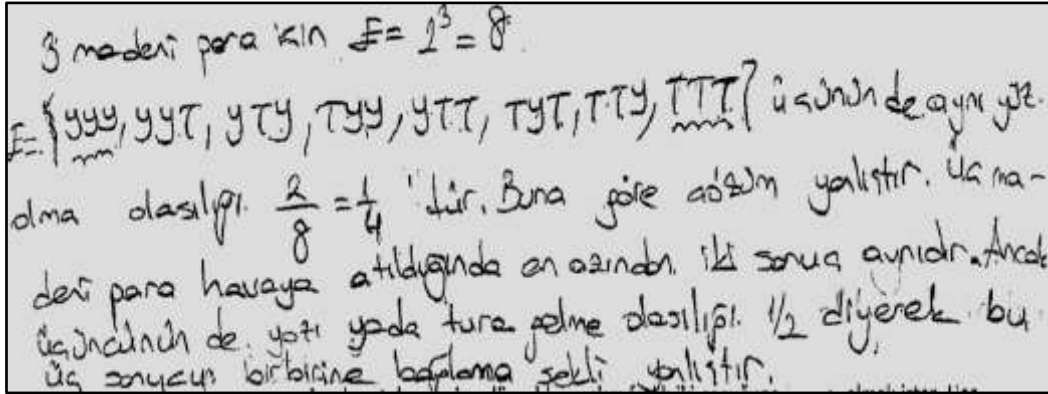 3 madeni para için E = 2³ = 8.
E = {yyy, yyT, yTy, Tyy, yTT, TyT, TTy, TTT} üçünün de aynı yüz.
olma olasılığı 2/8 = 1/4 'tür. Buna göre çözüm yanlıştır. Üç ma-
deni para havaya atıldığında en azından iki sonuç aynıdır. Ancak
üçüncünün de yazı yada tura gelme olasılığı 1/2 diyerek bu
üç sonucu birbirine bağlama şekli yanlıştır.